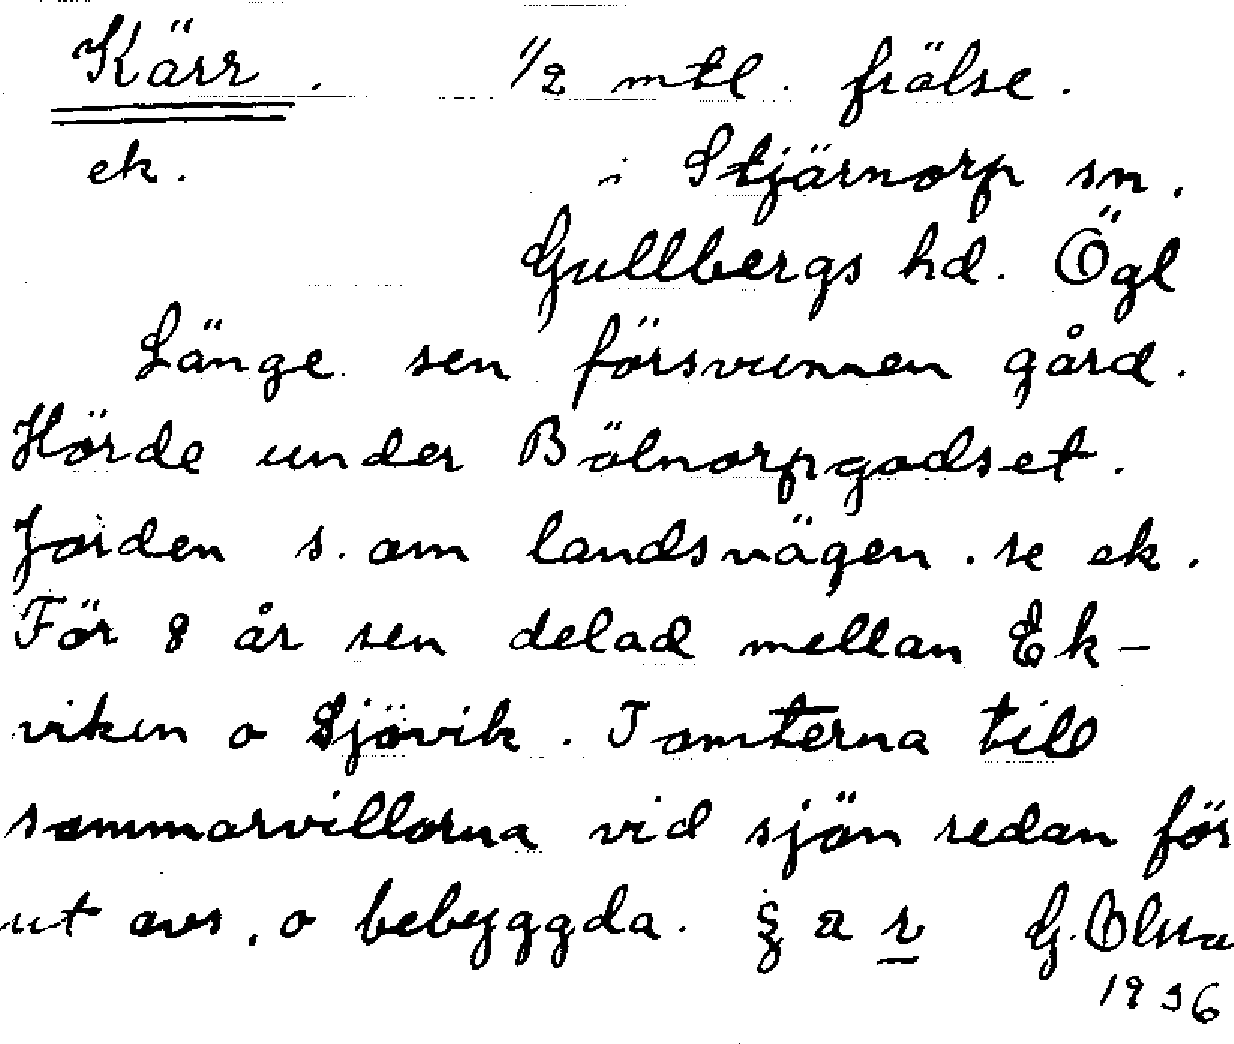 Kärr. 1/2 mtl. frälse.
ek. i Stjärnorp sn.
Gullbergs hd. Ögl
Länge sen försvunnen gård.
Hörde under Bölnorpgodset.
Jorden s. om landsvägen. se ek.
För 8 år sen delad mellan Ek-
viken o Sjövik. Tomterna till
sommarvillorna vid sjön redan för
ut avs. o bebyggda. a r G.
1936